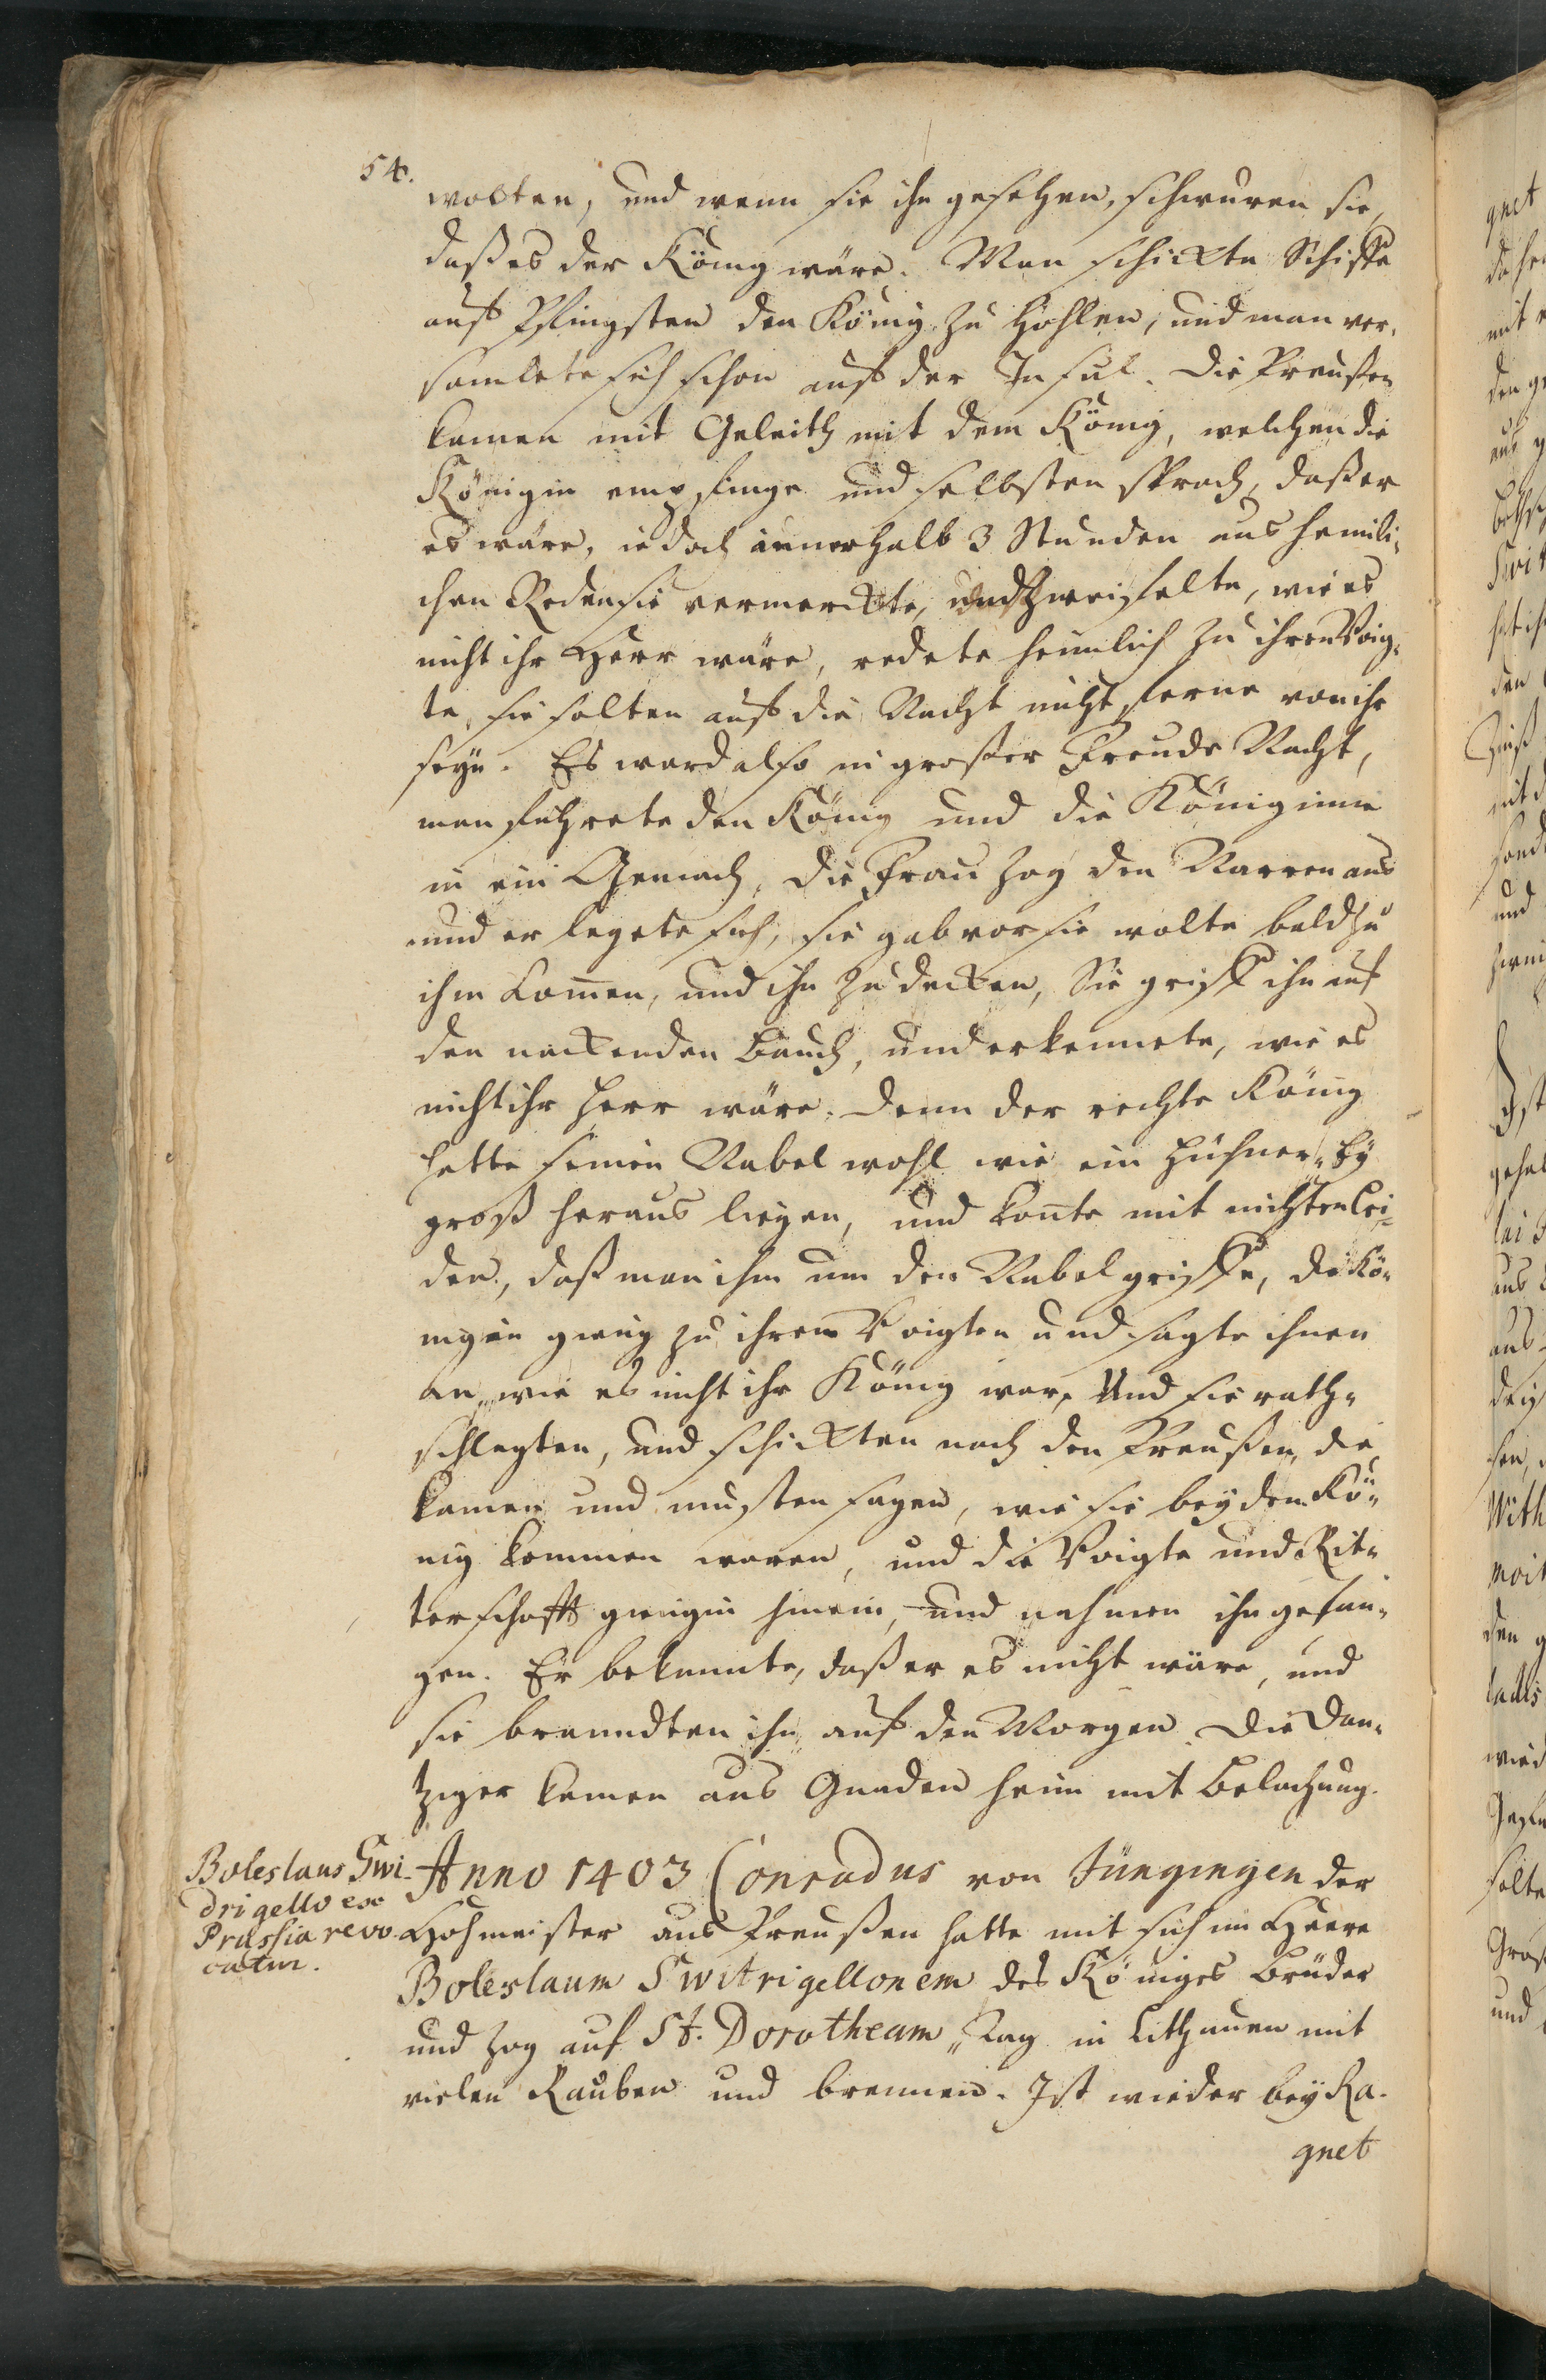 54.
wolten, und wenn sie ihn gesehen, schwuren sie,
daß es der König wäre. Man schickte Schiffe
auf Pfingsten den König zu hohlen, und man ver-
samlete sich schon auf der Insul. Die Preußen
kamen mit Geleith mit dem König, welchen die
Königin empfinge und selbsten sprach, daß er
es wäre, iedoch innerhalb 3 Stunden aus heimli-
chen Reden sie vermerckte, und zweiffelte, wie es
nicht ihr Herr wäre, redete heimlich zu ihren Voig-
te, sie solten auf die Nacht nicht ferne von ihr
seyn. Es ward also in großer Freude Nacht,
man führete den König und die Königinne
in ein Gemach, die Frau zog den Narren aus
und er legete sich, sie gab vor sie wolte bald zu
ihm kom̃en, und ihn zu decken, Sie griff ihn auf
den nackenden Bauch, und erkennete, wie es
nicht ihr Herr wäre. Denn der rechte König
hette seinen Nabel wohl wie ein Hühner-Ey
groß heraus liegen, und kon̄te mit nichten lei-
den, daß man ihm um den Nabel griffe, die Kö-
nigin gieng zu ihren Voigten und sagte ihnen
an, wie es nicht ihr König war, Und sie rath-
schlagten, und schickten nach den Preußen, die
kamen und musten sagen, wie sie bey dem Kö-
nig kommen waren, und die Voigte und Rit-
terschafft giengen hinein, und nahmen ihn gefan-
gen. Er bekannte, daß er es nicht wäre, und
sie brandten ihn auf den Morgen. Die Dan-
tziger kamen aus Gnaden heim mit Belachung.
Boleslaus Swi-
drigello ex
Prussia revo-
catur.
Anno 1403 Conradus von Jüngingen der
Hohmeister aus Preußen hatte mit sich im Heere
Boleslaum Switrigellonem des Königes Bruder
und zog auf St. Dorotheam Tag in Lithauen mit
vielen Rauben und brennen. Ist wieder bey Ra-
gnet